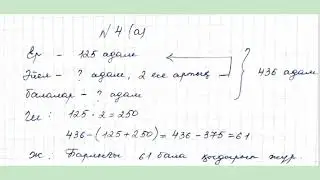 № 4 (а)
Ер - 125 адам
Әйел - ? адам, 2 есе артық
436 адам
балалар - ? адам
Ш: 125 · 2 = 250
436 - (125 + 250) = 436 - 375 = 61
Ж. Барлығы 61 бала қыдырып жүр.